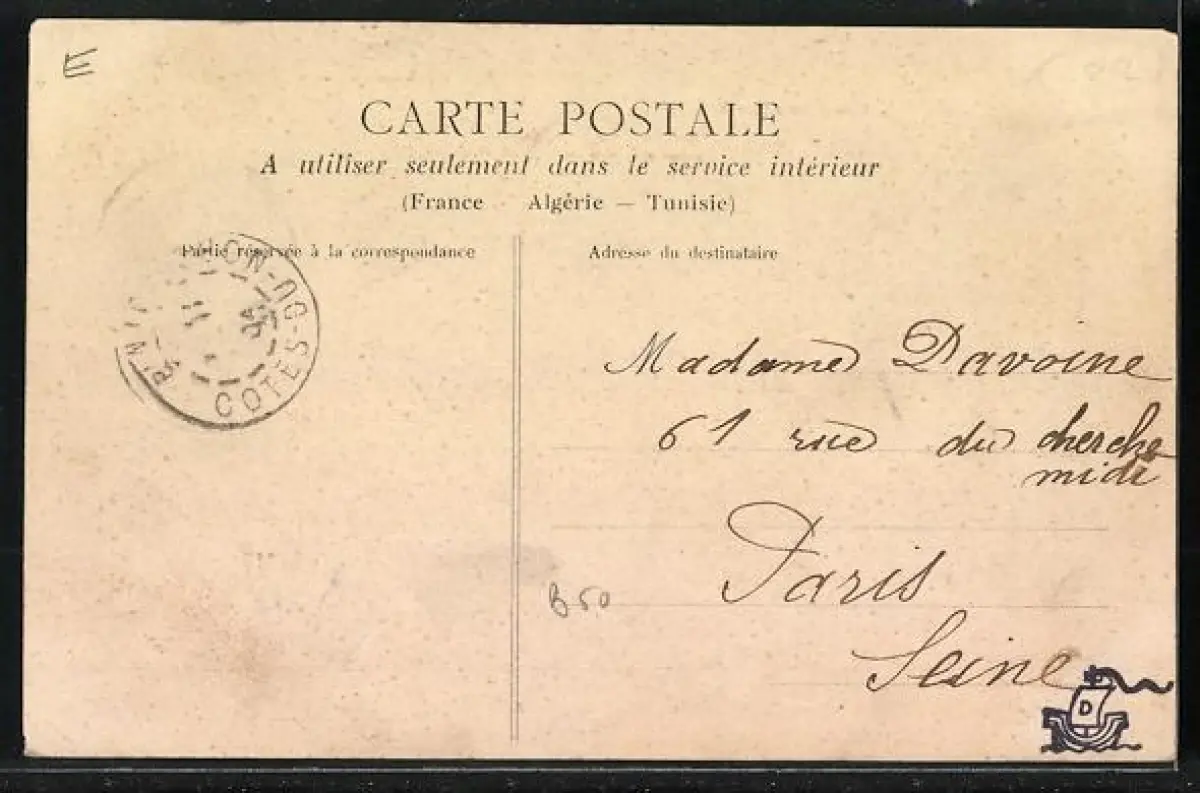 E
CARTE POSTALE
A utiliser seulement dans le service intérieur
(France Algérie — Tunisie)
Partie réservée à la correspondance
Adresse du destinataire
11
COTES-DU-NO
Madame Davoine
61 rue du cherche
midi
Paris
B50
Seine
D